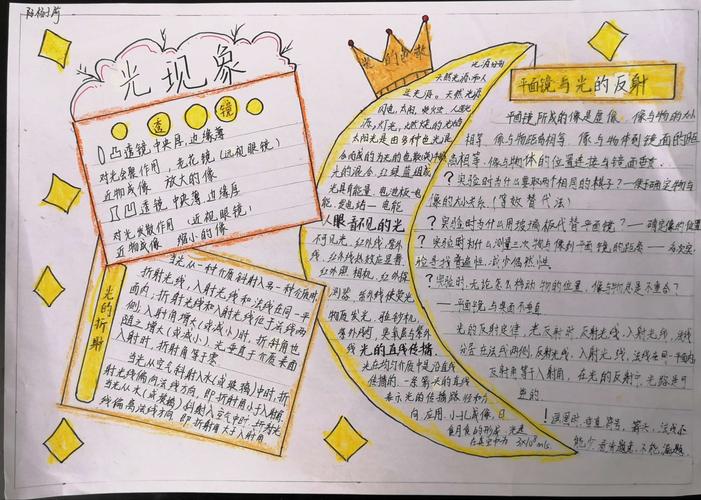 光现象
透镜
凸透镜 中央厚,边缘薄
对光会聚作用,老花镜(远视眼镜)
近物成像 放大的像
凹透镜 中央薄,边缘厚
对光发散作用(近视眼镜)
近物成像 缩小的像
光的折射
当光从一种介质斜射入另一种介质时
折射光线,入射光线和法线在同一平
面内,折射光线和入射光线位于法线两
侧,入射角增大(或减小)时,折射角也
随之增大(或减小)光垂直于介质表面
入射时,折射角等于零
当光从空气斜射入水(或玻璃)中时,折
射光线偏离法线方向,即折射角小于入射角
当光从水(或玻璃)斜射入空气中时,折射光
线偏离法线方向,即折射角大于入射角
天然光源和人
造光源。天然光源
闪电,太阳,萤火虫,人造光
源,灯光,点燃的
太阳光是由多种色光混
合而成的为光的色散
光的混合,红绿蓝组成
光具有能量
能,发电站—电能
人眼看不见的光
不可见光,红外线,紫外
线,红外线热效应显著
红外照相机,红外探
测器,紫外线使荧光
物质发光,验钞机
紫外线灯
线 光的直线传播
光在均匀介质中是沿直线
传播的,一条带箭头的直线
表示光的传播路径和方
向 应用 小孔成像,日
食月食的形成,光速
在真空中为 3×10⁸m/s
平面镜与光的反射
平面镜所成的像是虚像,像与物的大小
相等,像与物距离相等,像与物体到镜面的距
离相等,像与物体的位置连接与镜面垂直
?实验时为什么要取两个相同的棋子?—便于确定物与
像的大小关系(等效替代法)
?实验时为什么用玻璃板代替平面镜?—确定像的位置
?实验时为什么测量三次物与像到平面镜的距离—多次实
验寻找普遍性,减少偶然性
?实验时,无论怎么移动物的位置,像与物总是不重合?
—平面镜与桌面不垂直
光的反射定律,光反射时,反射光线,入射光线,法线
分居在法线两侧,反射光线,入射光线,法线在同一平面内
反射角等于入射角,在光的反射中,光路是可
逆的
!画图时,垂直符号,箭头,法线